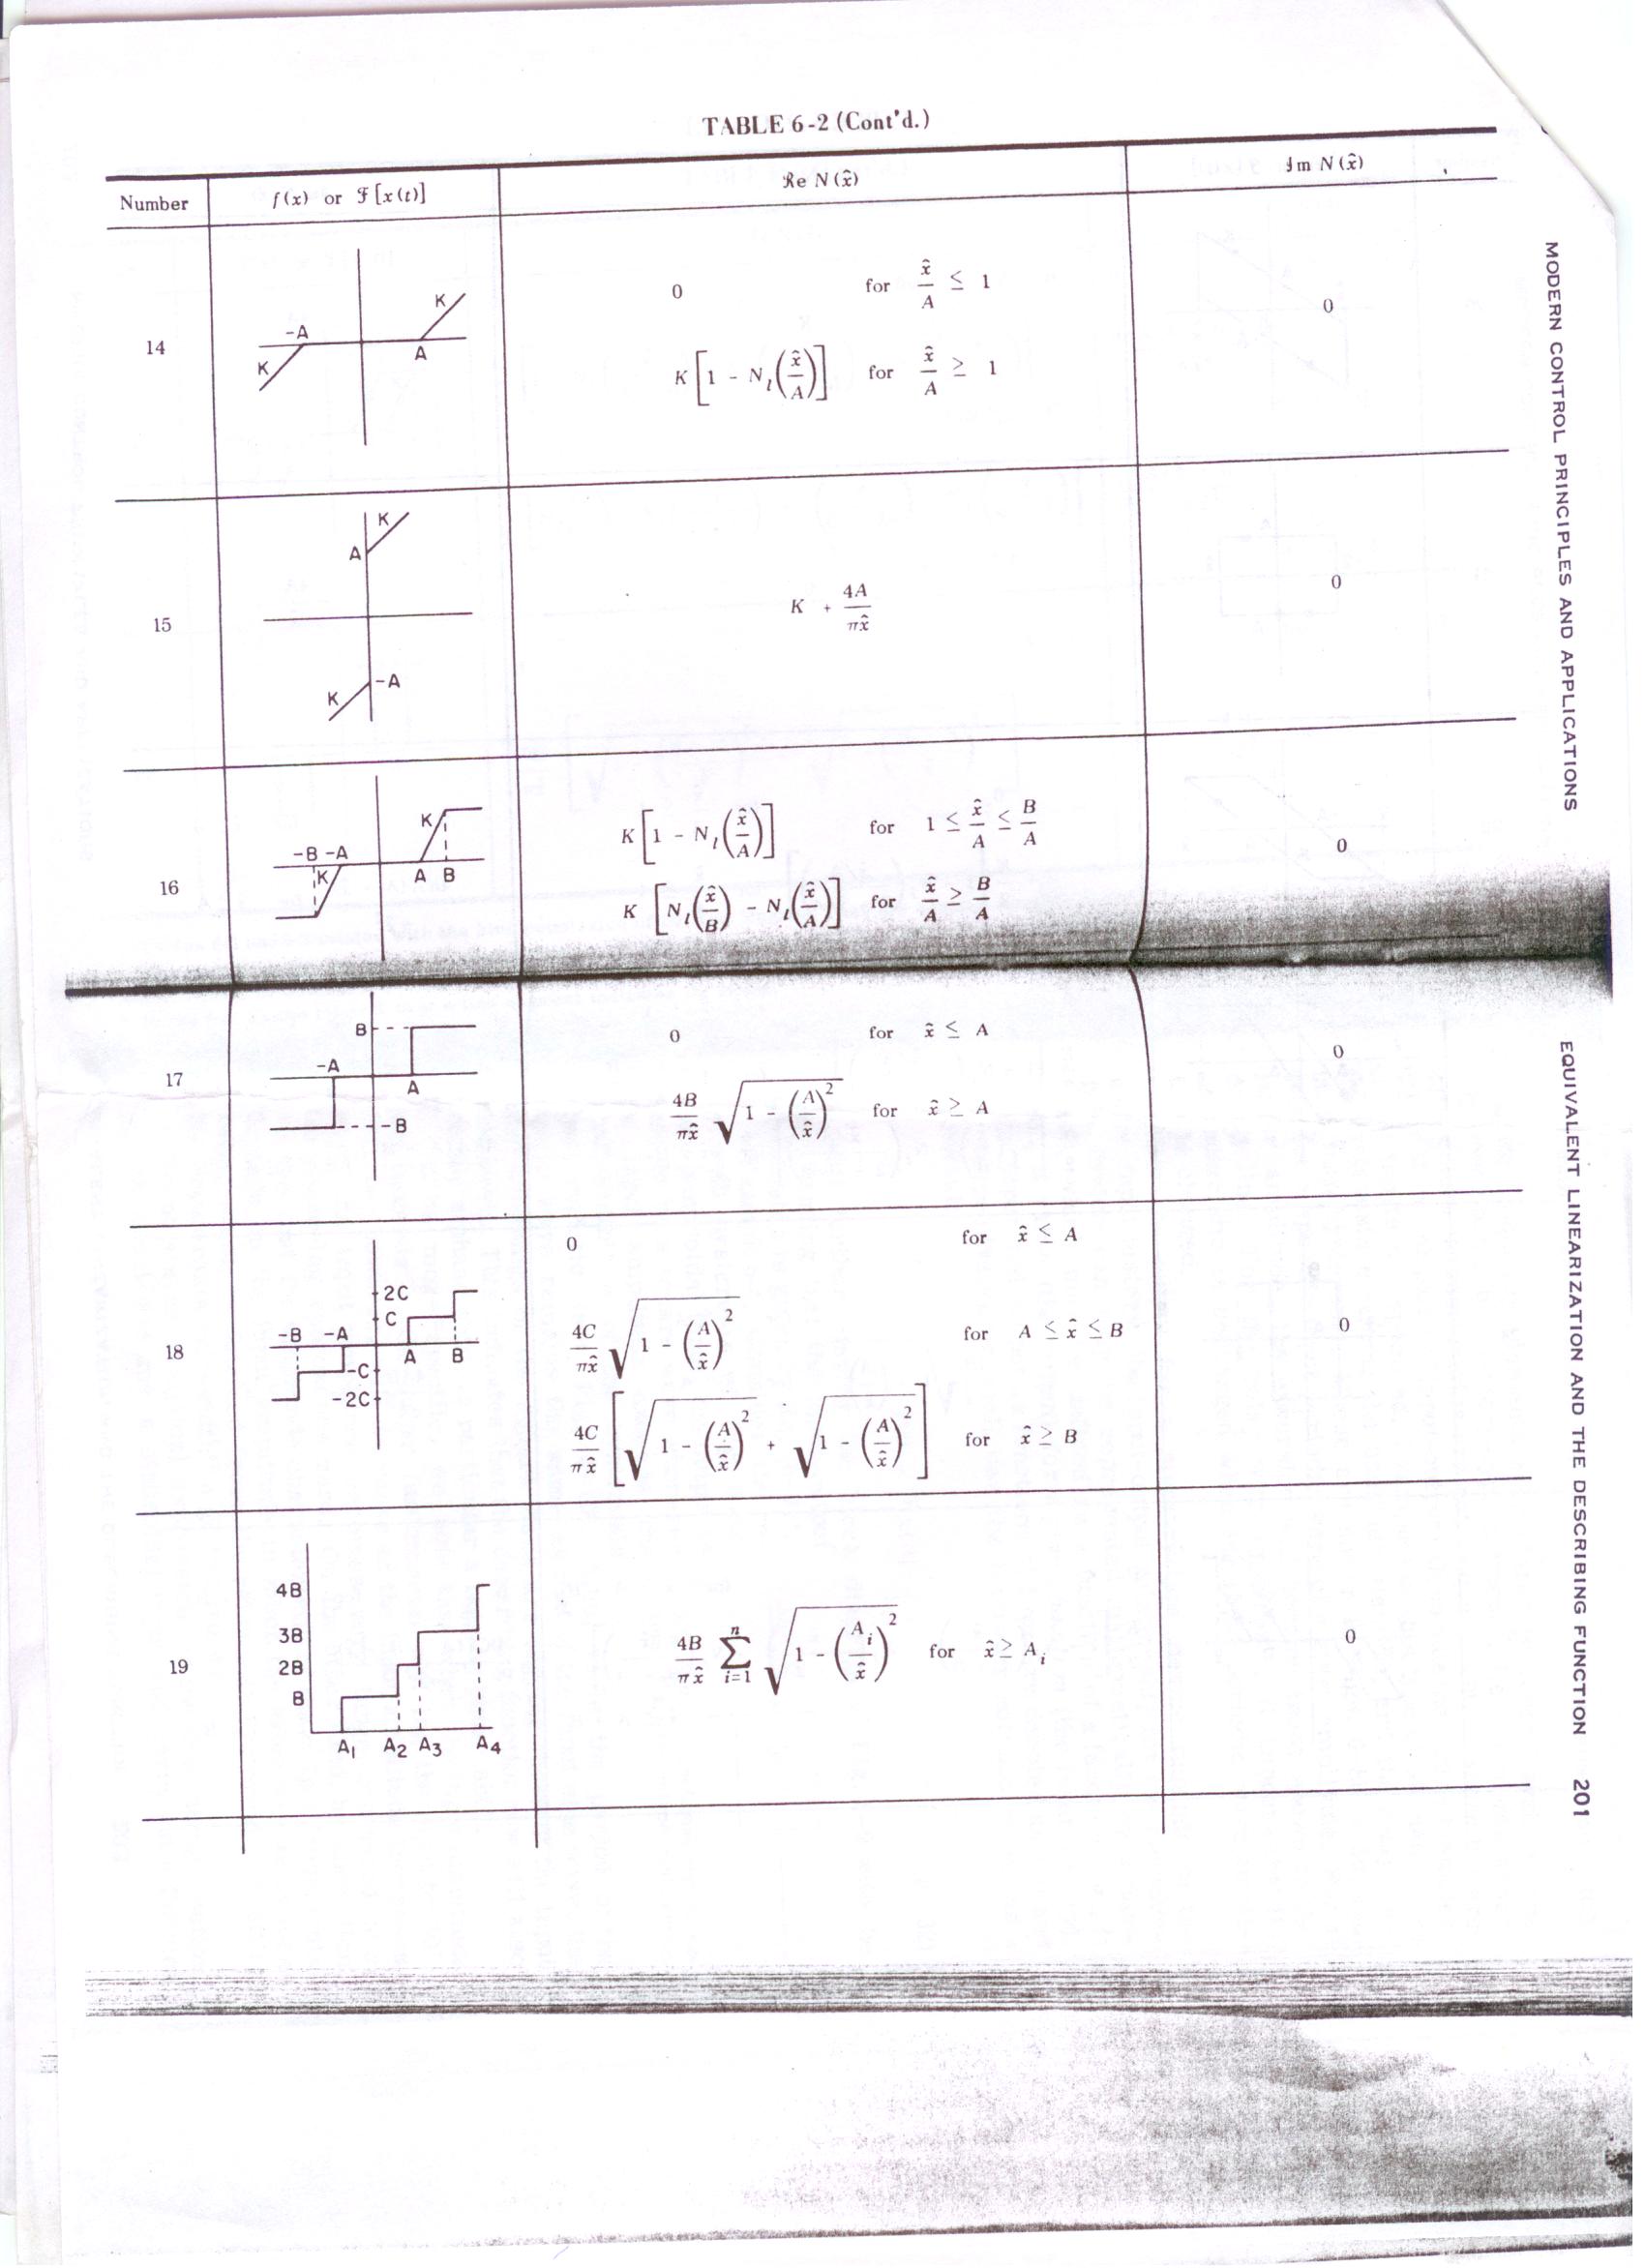 TABLE 6-2 (Cont'd.)
Number f(x) or ℱ[x(t)] ℜe N(x̂) ℐm N(x̂)
14
K
-A
A
K
0 for x̂/A ≤ 1
K[1 - N_l(x̂/A)] for x̂/A ≥ 1
0
15
K
A
-A
K
K + 4A/πx̂
0
16
K
-B -A
K
A B
K[1 - N_l(x̂/A)] for 1 ≤ x̂/A ≤ B/A
K[N_l(x̂/B) - N_l(x̂/A)] for x̂/A ≥ B/A
0
17
B
-A
A
-B
0 for x̂ ≤ A
4B/πx̂ √(1 - (A/x̂)²) for x̂ ≥ A
0
18
2C
C
-B -A
A B
-C
-2C
0 for x̂ ≤ A
4C/πx̂ √(1 - (A/x̂)²) for A ≤ x̂ ≤ B
4C/πx̂ [√(1 - (A/x̂)²) + √(1 - (A/x̂)²)] for x̂ ≥ B
0
19
4B
3B
2B
B
A₁ A₂ A₃ A₄
4B/πx̂ Σ_{i=1}^{n} √(1 - (A_i/x̂)²) for x̂ ≥ A_i
0
MODERN CONTROL PRINCIPLES AND APPLICATIONS
EQUIVALENT LINEARIZATION AND THE DESCRIBING FUNCTION 201